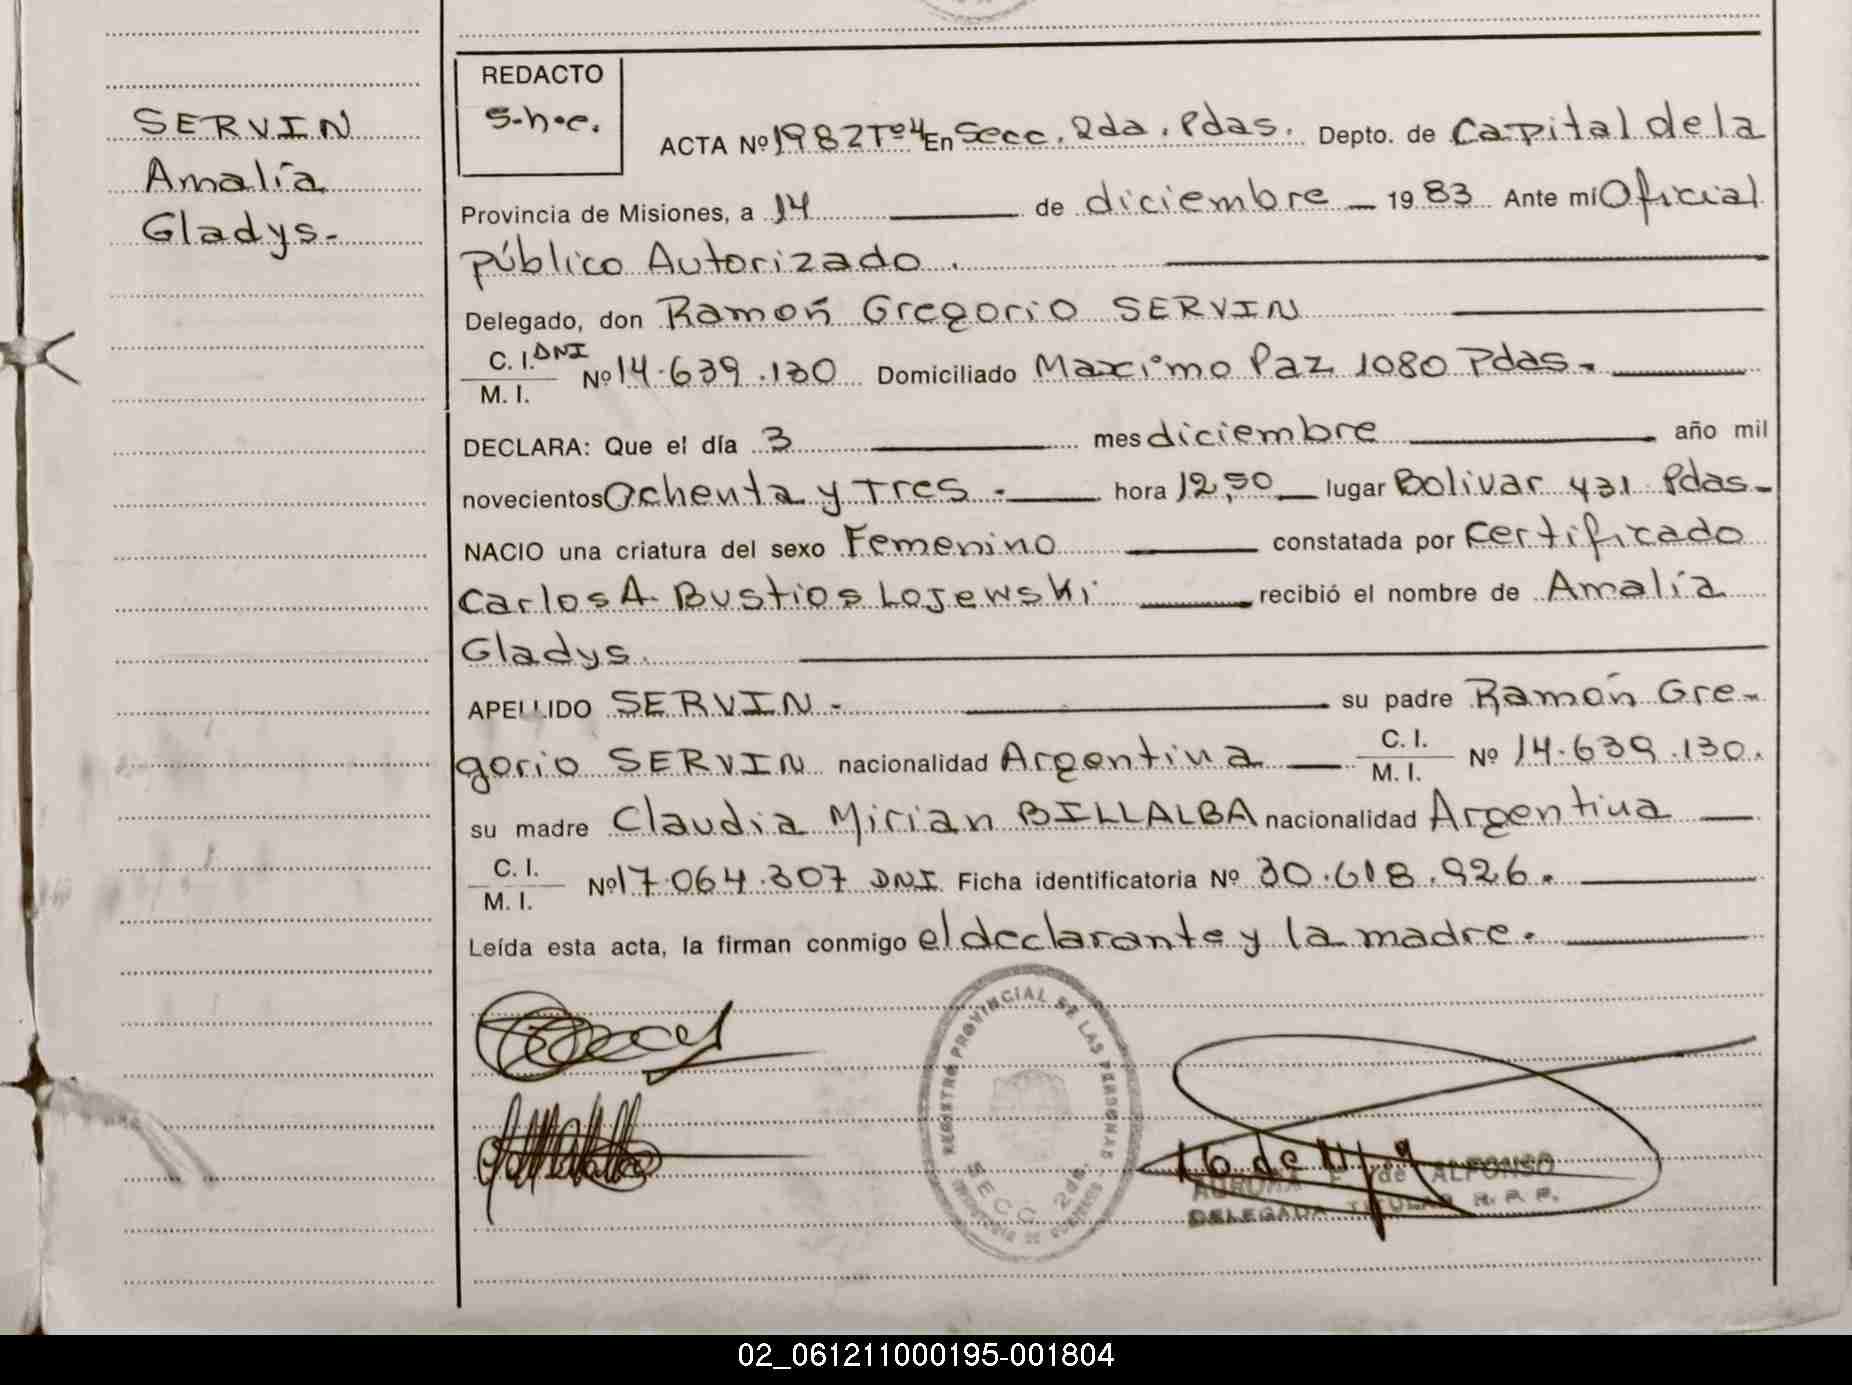 SERVIN
Amalía
Gladys.-
REDACTO
S.h.c.
ACTA Nº 1982 Tº4 En Secc. 2da. Pdas. Depto. de Capital de la
Provincia de Misiones, a 14 de diciembre 1983 Ante mí Oficial
público Autorizado.
Delegado, don Ramón Gregorio SERVIN
C. I. DNI
M. I.
Nº 14.639.130 Domiciliado Maximo Paz 1080 Pdas.
DECLARA: Que el día 3 mes diciembre año mil
novecientos Ochenta y Tres.- hora 12,50 lugar Bolivar 431 Pdas.
NACIO una criatura del sexo Femenino constatada por Certificado
Carlos A. Bustios Lojewski recibió el nombre de Amalía
Gladys.
APELLIDO SERVIN.- su padre Ramón Gre-
gorio SERVIN nacionalidad Argentina C. I.
M. I. Nº 14.639.130.
su madre Claudia Mirian BILLALBA nacionalidad Argentina
C. I.
M. I. Nº 17.064.307 DNI Ficha identificatoria Nº 30.618.926.
Leída esta acta, la firman conmigo el declarante y la madre.
REGISTRO PROVINCIAL DE LAS PERSONAS
SECC 2da.
AURORA de ALFONSO
DELEGADA TITULAR R. P. P.
02_061211000195-001804